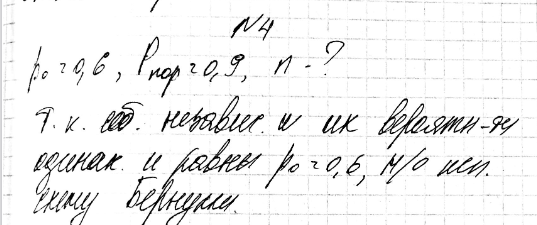 №4
p₀ = 0,6, Pпор = 0,9, n - ?
т. к. соб. независ. и их вероятн-ти
одинак. и равны p₀ = 0,6, м/о исп.
схему Бернулли.